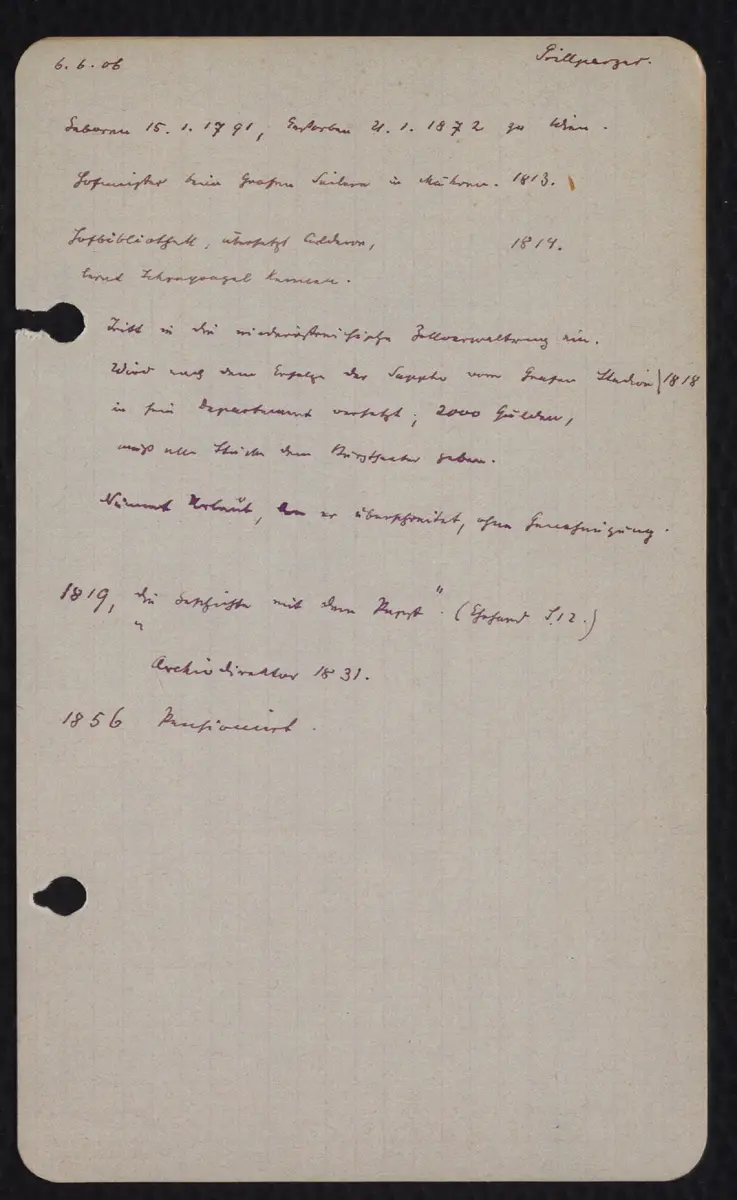 6. 6. 06 Grillparzer.
Geboren 15. 1. 1791, Gestorben 21. 1. 1872 zu Wien.
Hofmeister beim Grafen Seilern in Mähren. 1813.
Hofbibliothek, übersetzt Calderon, 1814.
lernt Schreyvogel kennen.
Tritt in die niederöstreichische Zollverwaltung ein.
Wird nach dem Erfolge der Sappho vom Grafen Stadion 1818
in sein Departement versetzt; 2000 Gulden,
muß alle Stücke dem Burgtheater geben.
Nimmt Urlaub, den er überschreitet, ohne Genehmigung.
1819, „die Geschichte mit dem Papst“. (Ehrhard S. 12.)
Archivdirektor 1831.
1856 Pensioniert.